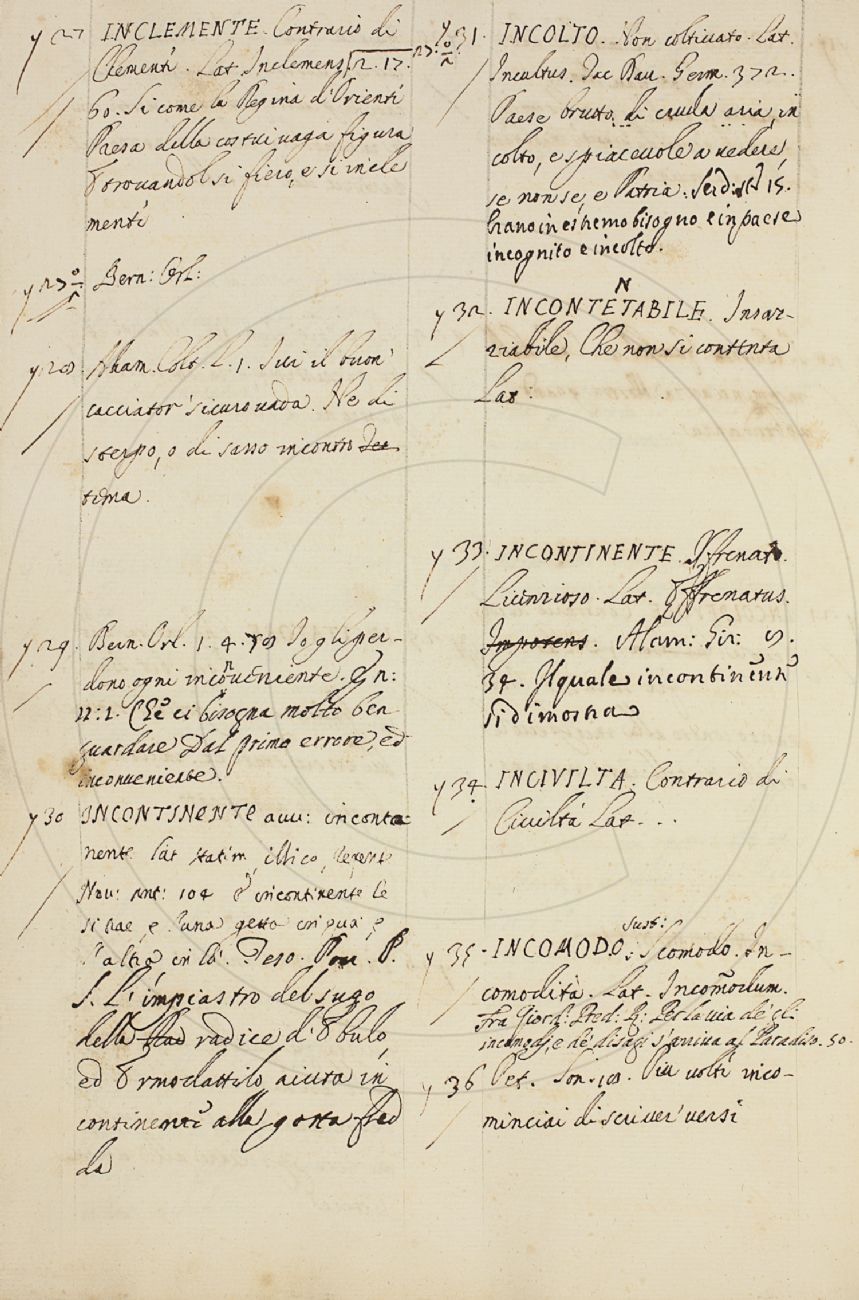 y 27 INCLEMENTE. Contrario di
Clemente. Lat. Inclemens. 2. 17.
60. Si come la Regina d'Oriente
Paesa della costui vaga figura
Trovandol si fiero, e si incle
mente
y 27 Bern: Orl:
y 28 Alam. Colt. L. 1. Ivi il buon
cacciator sicuro vada. Ne di
sterpo, o di sasso incontro
tema.
y 29. Bern. Orl. 1. 4. Io gli per-
dono ogni inconveniente.
Che ci bisogna molto ben
guardare Dal primo errore, ed
inconveniente.
y 30 INCONTINENTE avv: inconta
nente Lat statim, illico, repente
Nov: ant: 104 incontinente le
si trae, e l'una getta in qua, e
l'altra in là. Teso. Pov. P.
S. L'impiastro del sugo
della radice di Ebulo,
ed Ermodattilo aiuta in
continente alla gotta fred
da
y 31. INCOLTO. Non coltivato. Lat.
Incultus. Dav. Germ. 372.
Paese brutto, di cruda aria, in
colto, e spiacevole a vedere,
se non se, e Patria. 15.
hano in estremo bisogno e in paese
incognito e incolto.
y 32. INCONTENTABILE. Insaz-
ziabile, Che non si contenta
Lat:
y 33. INCONTINENTE. Sfrenato.
Licenzioso. Lat. Effrenatus.
Impotens. Alam: Gir: 9.
34. Il quale incontinente
si dimostra
y 34. INCIVILTA. Contrario di
Civiltà Lat. . .
y 35. INCOMODO. sust: Scomodo. In-
comodità. Lat. Incomodum.
Fra Giord: Pred: R: Per la via de' gl'
incomodi, e de' disagi s'arriva al Paradiso. 50.
y 36 Pet. Son. Piu volte inco-
minciai di scriver versi